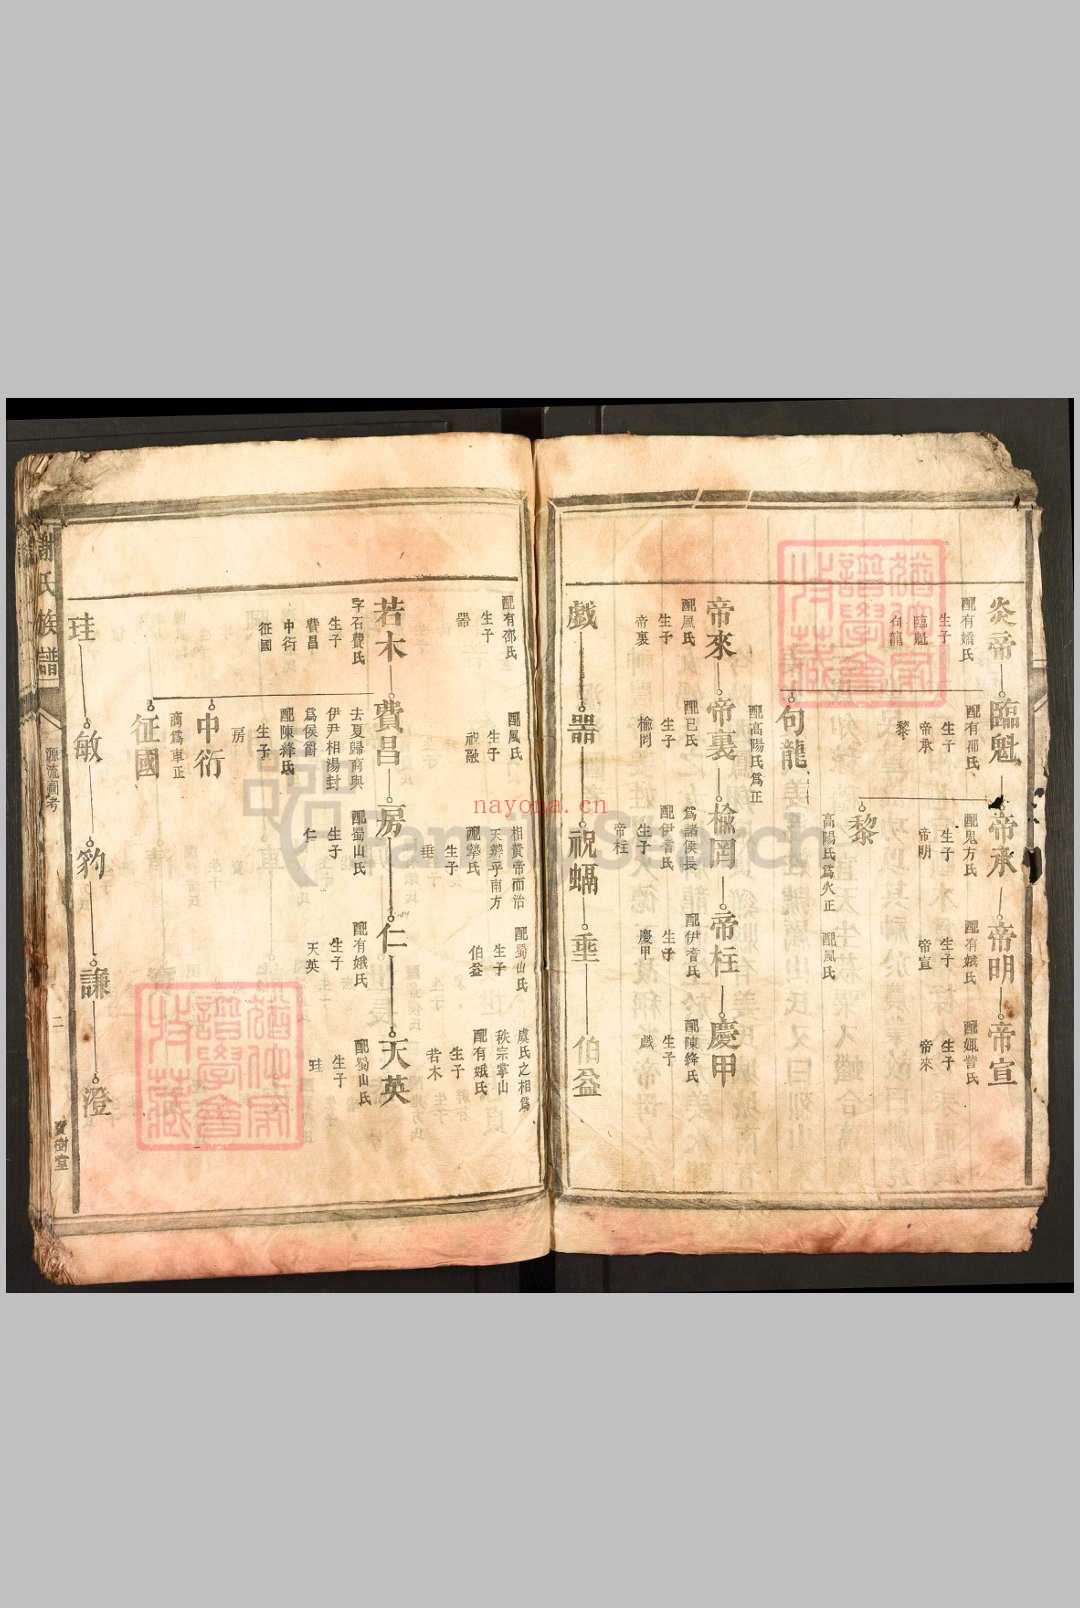 炎帝
配有嬌氏
生子
臨魁
句龍
臨魁
配有邵氏
生子
帝承
黎
帝承
配鬼方氏
生子
帝明
帝明
配有娥氏
生子
帝宣
帝宣
生子
帝來
句龍
配高陽氏爲正
黎
高陽氏爲火正
配風氏
帝來
配風氏
生子
帝裏
帝裏
配巳氏
生子
榆罔
榆罔
爲諸侯長
配伊耆氏
生子
帝柱
帝柱
配伊耆氏
生子
慶甲
慶甲
配陳鋒氏
生子
戲
戲
配有邵氏
生子
器
器
配風氏
生子
祝融
祝
相黃帝而治
天辨乎南方
生子
垂
垂
配蜀山氏
生子
伯益
伯益
虞氏之相爲
秩宗掌山
配有娥氏
生子
若木
若木
字石費氏
生子
費昌
中衍
征國
費昌
去夏歸商與
伊尹相湯封
爲侯爵
配陳鋒氏
生子
房
房
配蜀山氏
生子
仁
仁
配有娥氏
生子
天英
天英
配蜀山氏
生子
珪
中衍
商爲車正
征國
珪
敏
豹
謙
澄
謝氏族譜
源流圖考
二
寶樹堂
FamilySearch
nayona.cn